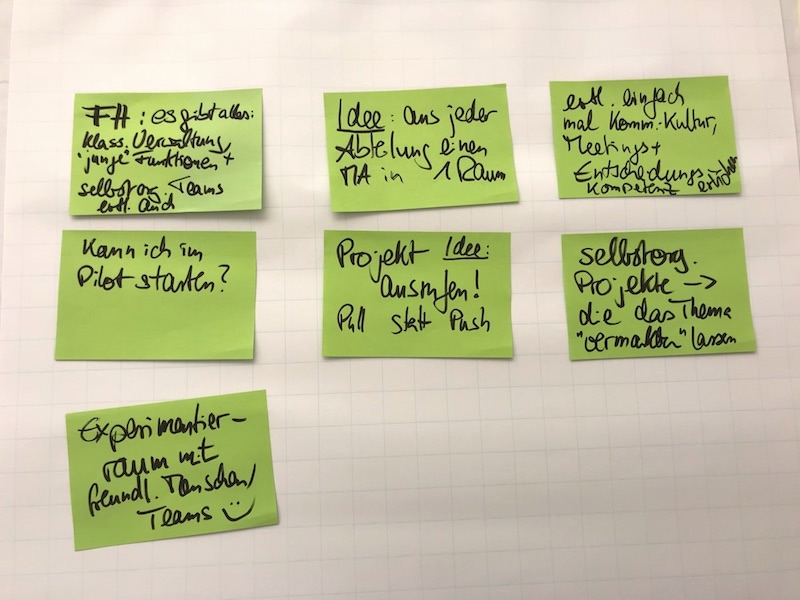 FH: es gibt alles:
klass. Verwaltung,
"junge" Funktionen +
selbstorg. Teams
evtl. auch
Idee: aus jeder
Abteilung einen
MA in 1 Raum
evtl. einfach
mal Komm.-Kultur,
Meetings +
Entscheidungs-
kompetenz erhöhen
Kann ich im
Pilot starten?
Projekt Idee:
ausrufen!
Pull statt Push
selbstorg.
Projekte →
die das Thema
"vermarkten" lassen
Experimentier-
raum mit
freundl. Menschen/
Teams :)